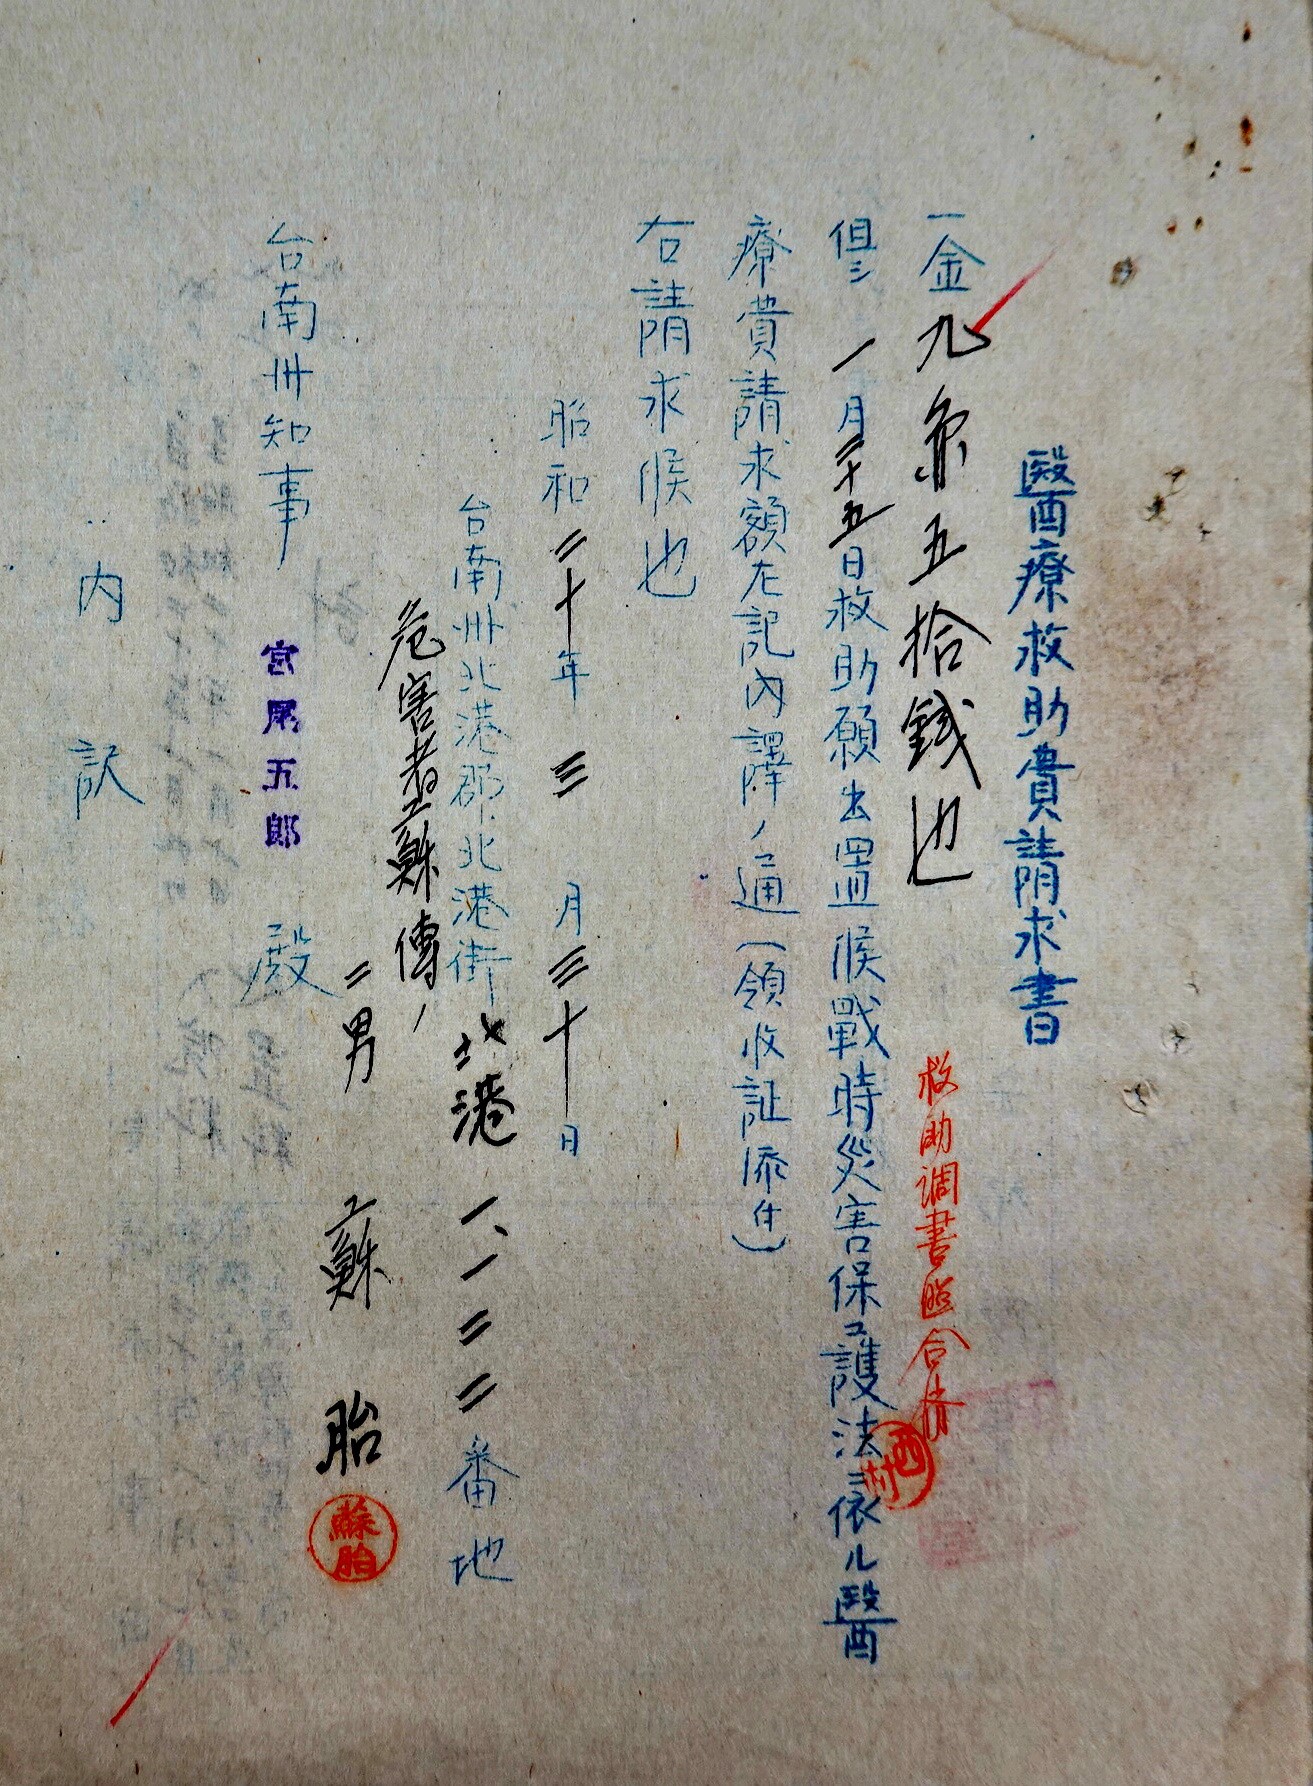 醫療救助費請求書
一金九円五拾錢也
救助調書照合済
西村
但シ一月二十五日救助願出置候戰時災害保護法ニ依ル醫
療費請求額左記內譯ノ通(領收証添付)
右請求候也
昭和二十年三月三十日
台南州北港郡北港街北港一、一二二番地
危害者蘇傳ノ
二男 蘇胎
蘇胎
台南州知事 宮尾五郎 殿
內訳